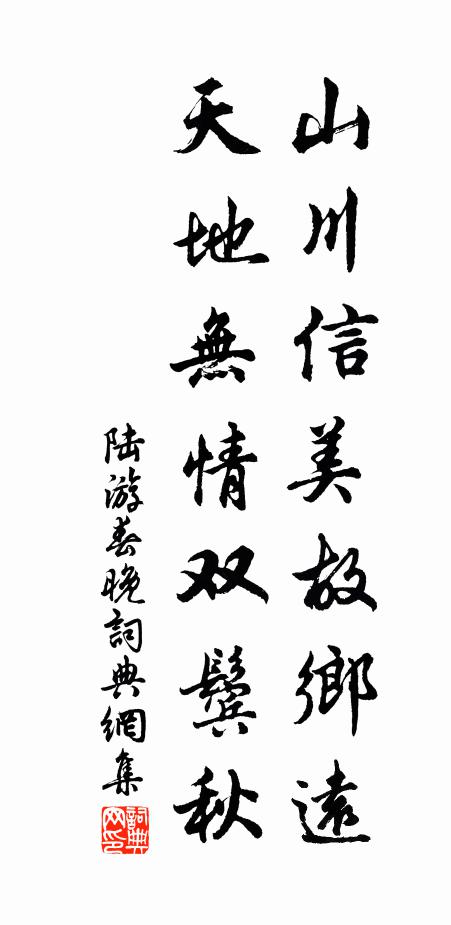 山川信美故鄉遠
天地無情双鬢秋
陆游春晚詞典網集
詞典网印